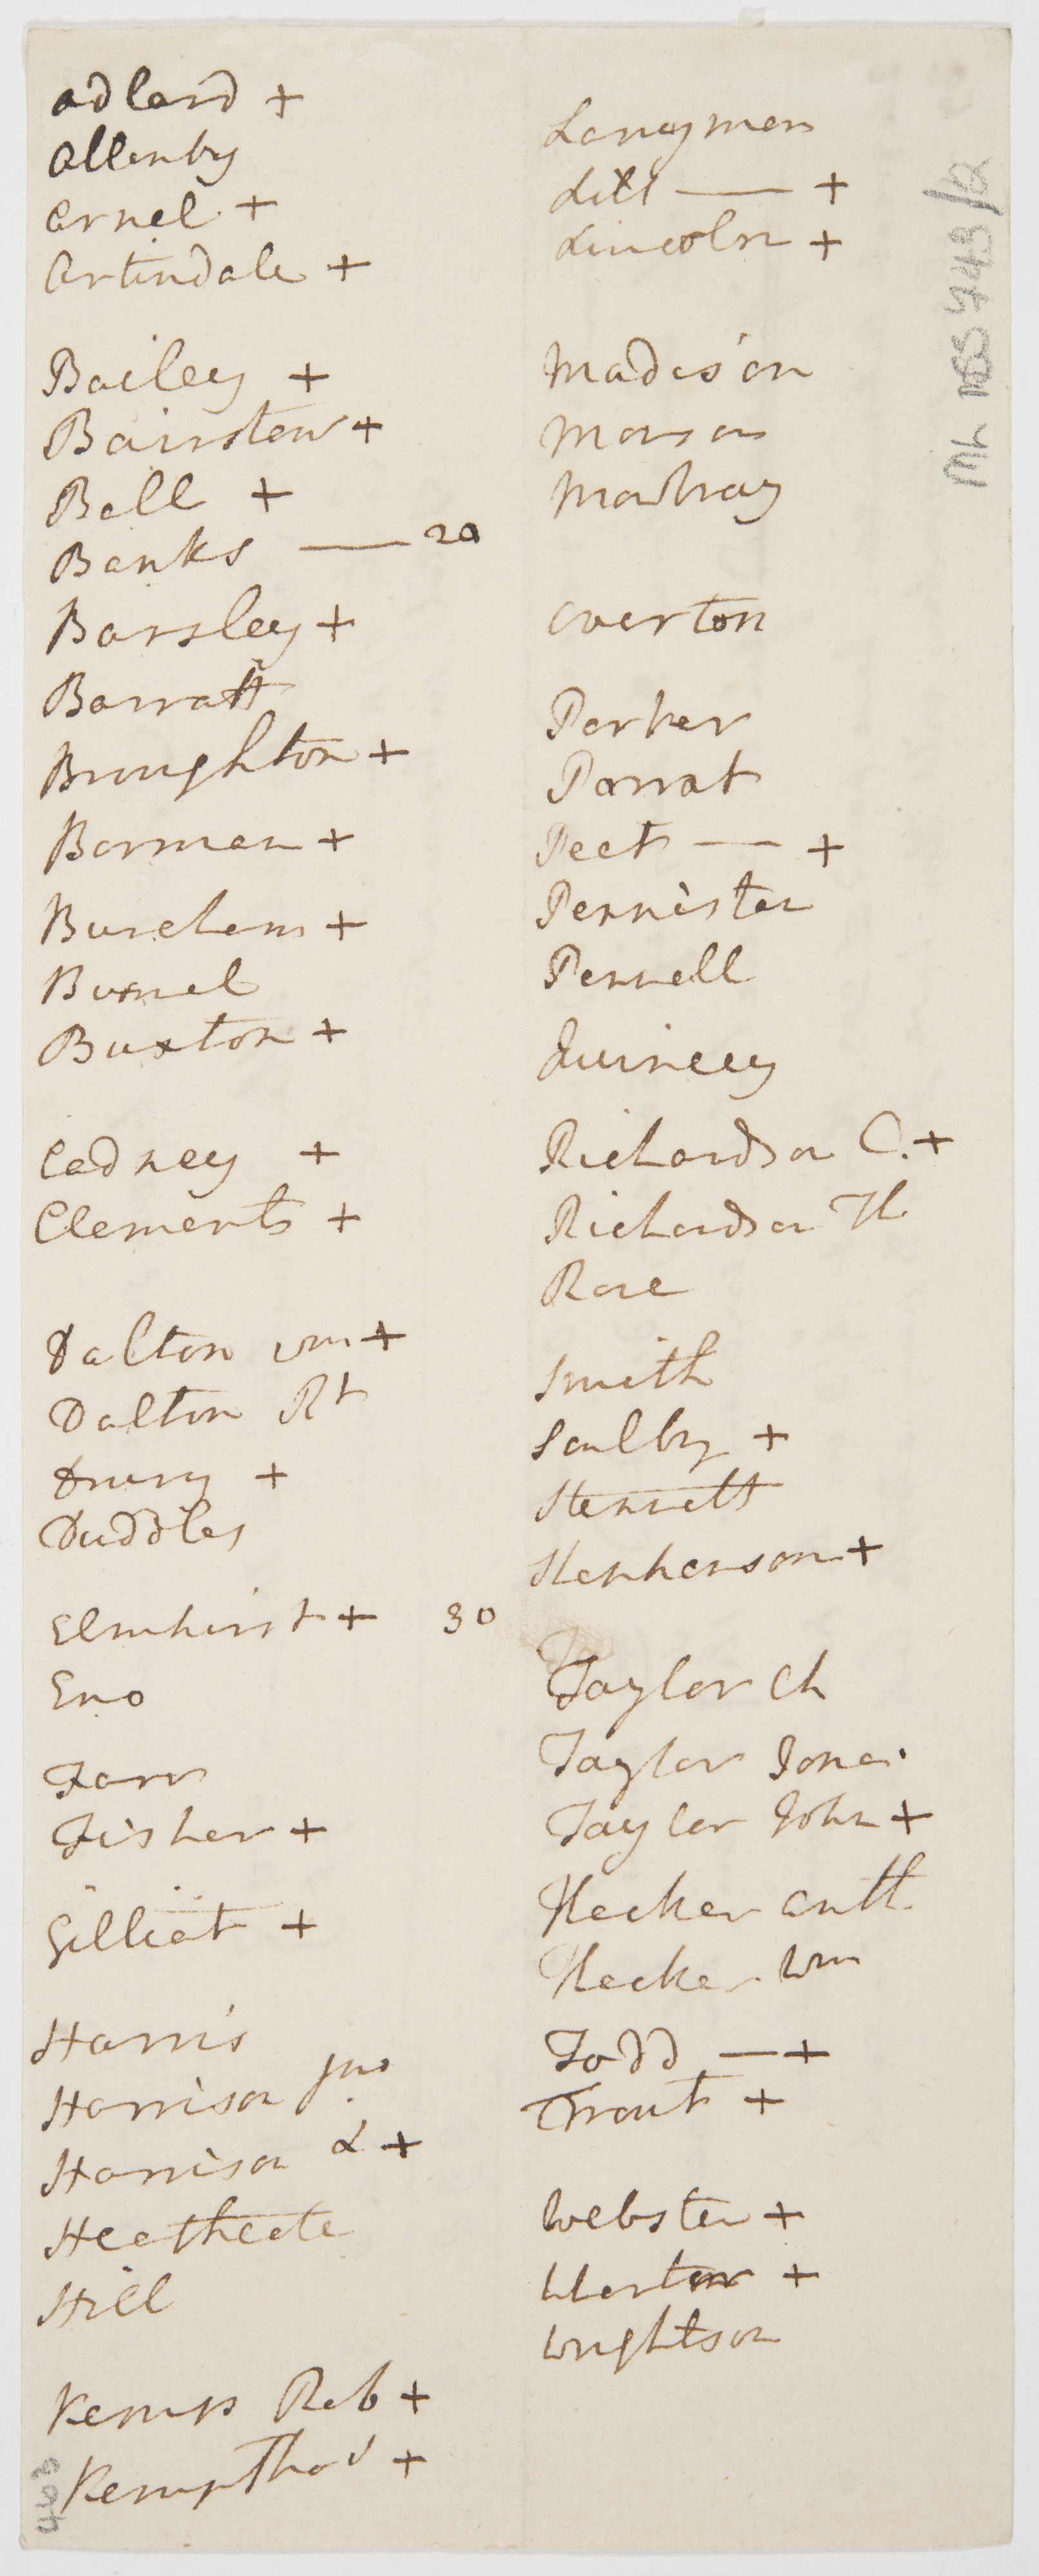 Adlard +
Allenby
Arnel +
Artindale +
Bailey +
Bairstew +
Bell +
Banks — 20
Barsley +
Barratt
Broughton +
Borman +
Burcham +
Burnel
Buxton +
Cadney +
Clements +
Dalton Wm +
Dalton Rt
Drury +
Duddles
Elmhirst + 30
Eno
Farr
Fisher +
Gilliat +
Harris
Harrison Jno
Harrison L +
Heathcote
Hill
Kemp Rob +
Kemp Thos +
Langman
Lill — +
Lincoln +
Madison
Mawbray
Overton
Parker
Parrat
Peet — +
Pennister
Pennell
Quincey
Richardson C. +
Richardson Th
Rose
Smith
Saulby +
Stennett
Stephenson +
Taylor Ch
Taylor Jona.
Taylor John +
Thecker Anth.
Thecker Wm
Todd — +
Trout +
Webster +
Weston +
Wrightson
403